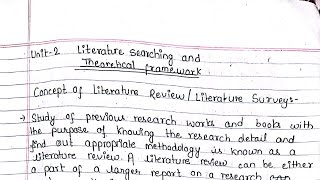 Unit-2 Literature searching and
Theoretical framework
Concept of Literature Review/Literature Surveys-
→ Study of previous research works and books with
the purpose of knowing the research detail and
find out appropriate methodology is known as a
literature review. A literature review can be either
a part of a larger report on a research